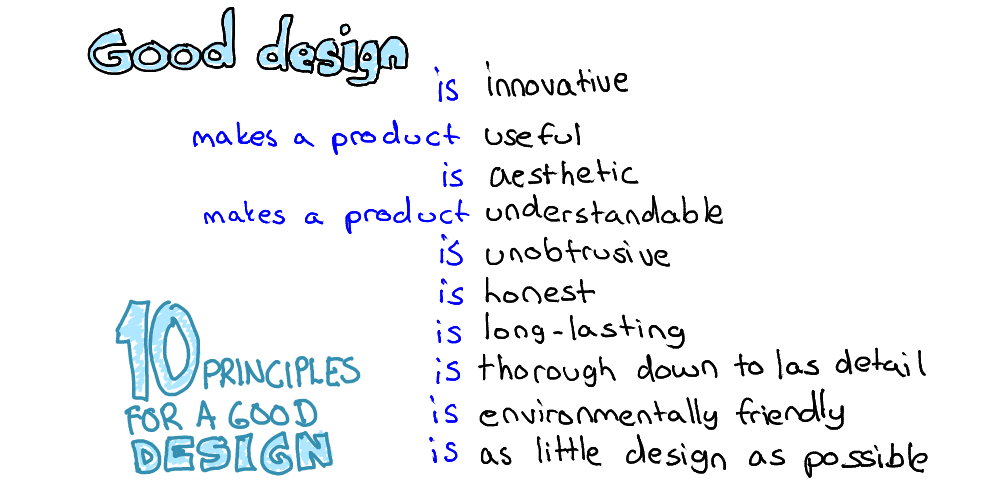 Good design
is innovative
makes a product useful
is aesthetic
makes a product understandable
is unobtrusive
is honest
is long-lasting
is thorough down to las detail
is environmentally friendly
is as little design as possible
10 PRINCIPLES
FOR A GOOD
DESIGN